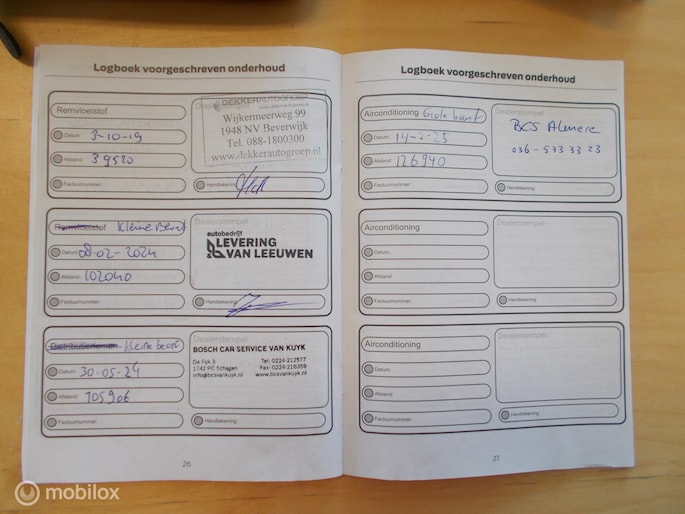 Logboek voorgeschreven onderhoud
Remvloeistof
Dealerstempel
DEKKERAUTOGROEP
Wijkermeerweg 99
1948 NV Beverwijk
Tel. 088-1800300
www.dekkerautogroep.nl
Datum: 3-10-19
Afstand: 39520
Factuurnummer:
Handtekening:
Remvloeistof Kleine Beurt
Dealerstempel
autobedrijf
LEVERING
& VAN LEEUWEN
Datum: 08-02-2024
Afstand: 102040
Factuurnummer:
Handtekening:
Distributieriemen Kleine beurt
Dealerstempel
BOSCH CAR SERVICE VAN KUYK
De Fok 3 Tel: 0224-212577
1742 PC Schagen Fax: 0224-216359
info@bcsvankuyk.nl www.bcsvankuyk.nl
Datum: 30-05-24
Afstand: 105906
Factuurnummer:
Handtekening:
26
Logboek voorgeschreven onderhoud
Airconditioning Grote beurt
Dealerstempel
BCS Almere
036-533 33 23
Datum: 14-2-25
Afstand: 126940
Factuurnummer:
Handtekening:
Airconditioning
Dealerstempel
Datum:
Afstand:
Factuurnummer:
Handtekening:
Airconditioning
Dealerstempel
Datum:
Afstand:
Factuurnummer:
Handtekening:
27
mobilox